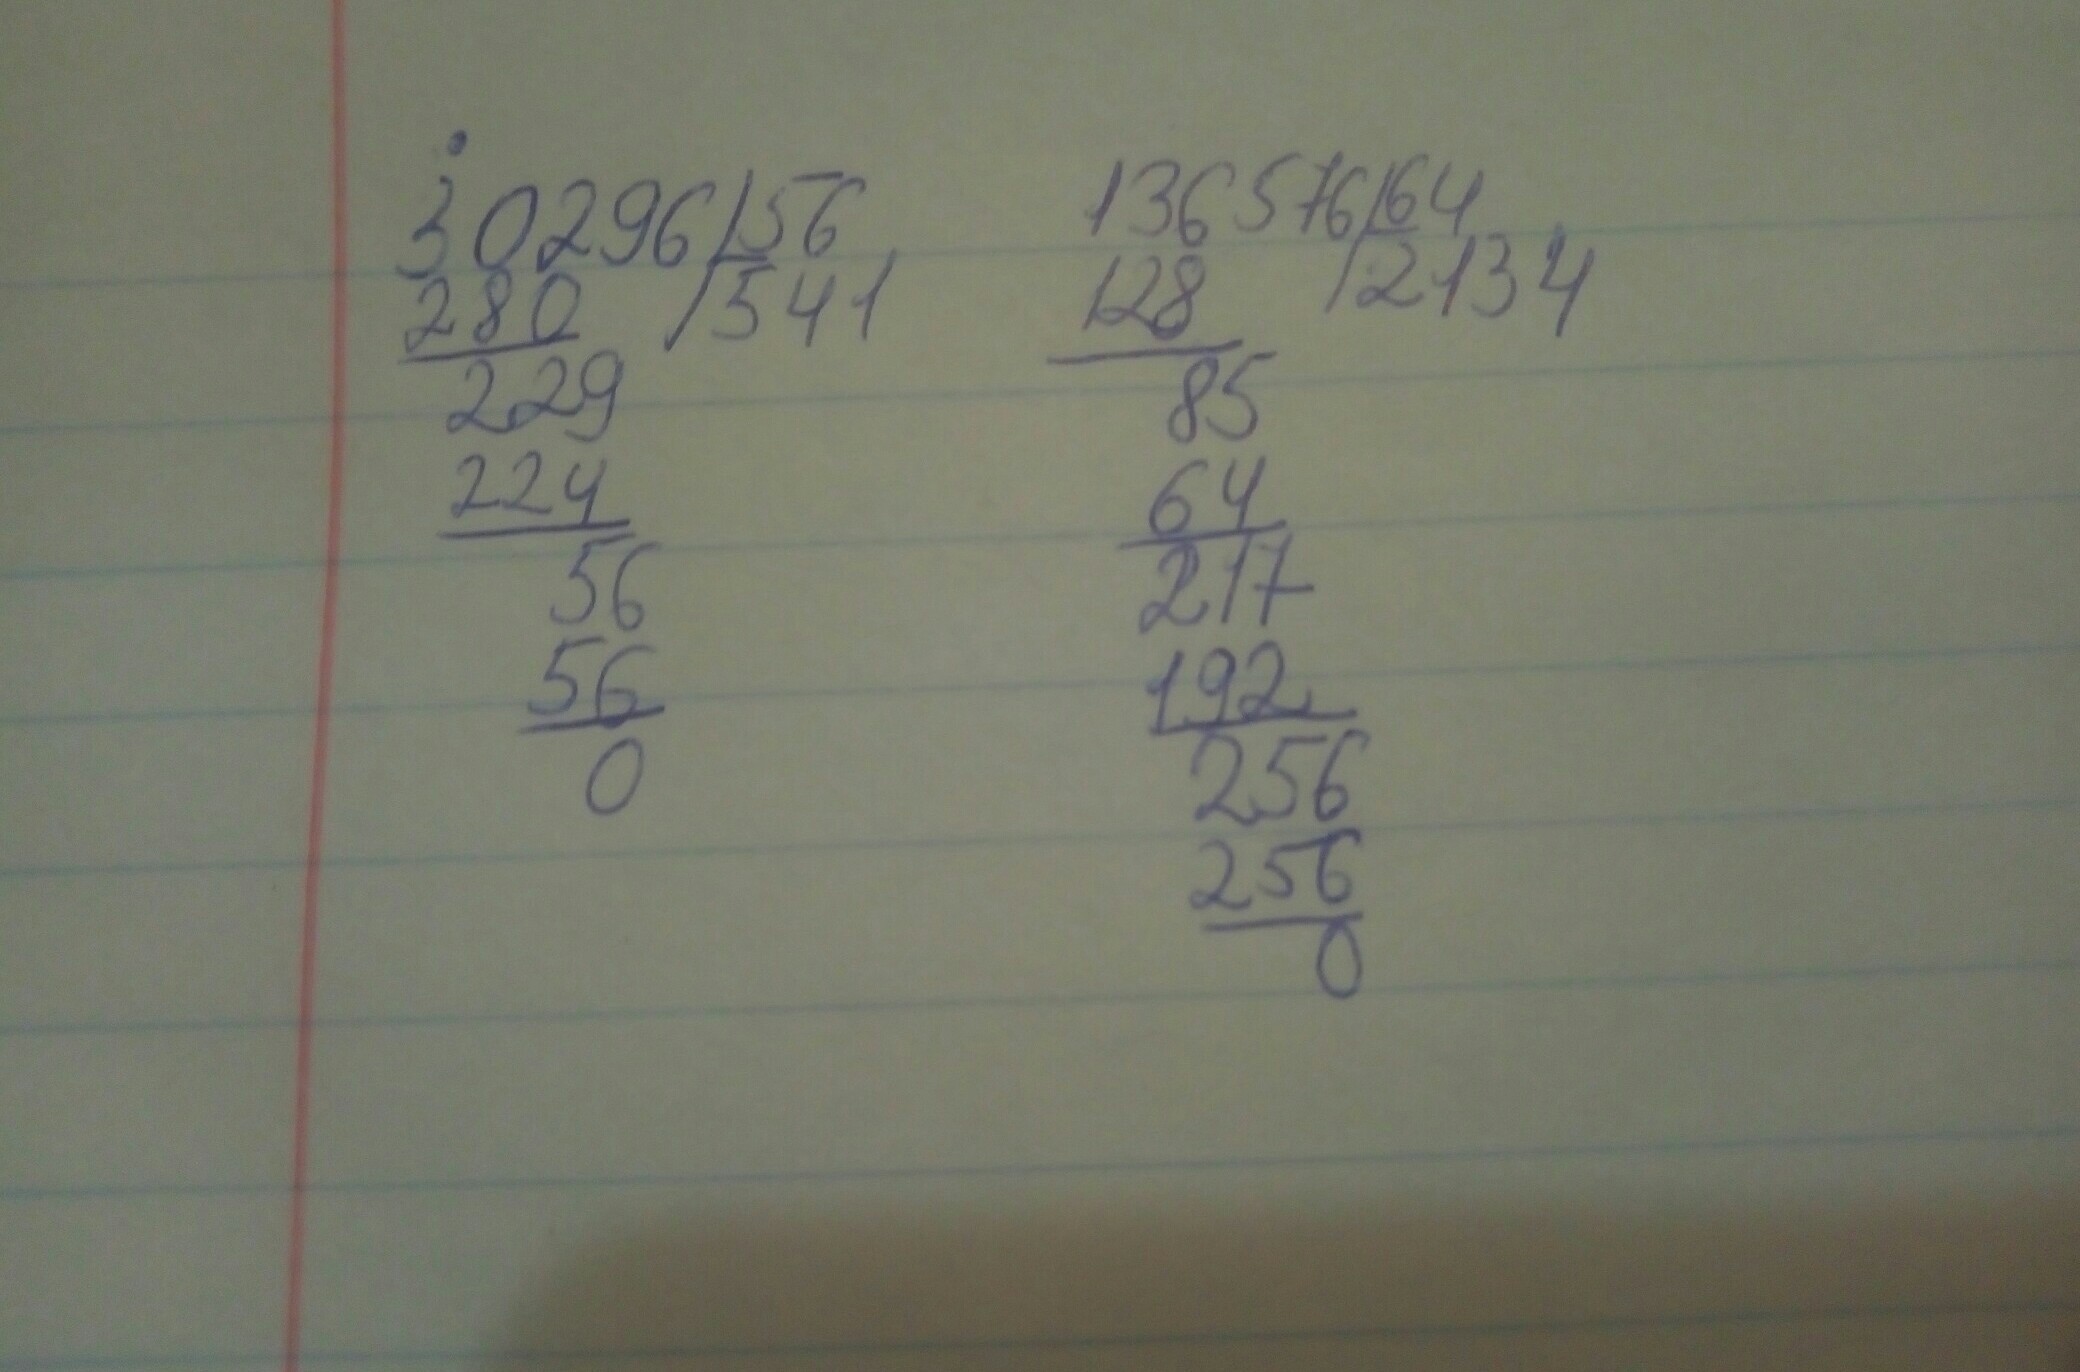 30296/56
280 /541
229
224
56
56
0
136576/64
128 /2134
85
64
217
192
256
256
0